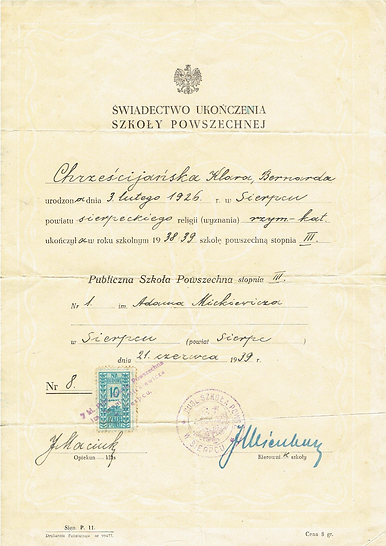 ŚWIADECTWO UKOŃCZENIA
SZKOŁY POWSZECHNEJ
Chrześcijańska Klara, Bernarda
urodzona dnia 3. lutego 1926. r. w Sierpcu
powiatu sierpeckiego religii (wyznania) rzym-kat.
ukończyła w roku szkolnym 1938/39 szkołę powszechną stopnia III.
Publiczna Szkoła Powszechna stopnia III.
Nr 1. im. Adama Mickiewicza
w Sierpcu (powiat Sierpc)
dnia 21. czerwca 1939 r.
Nr 8.
10
Opiekun klasy
Kierownik szkoły
Szn P. 11.
Cena 8 gr.